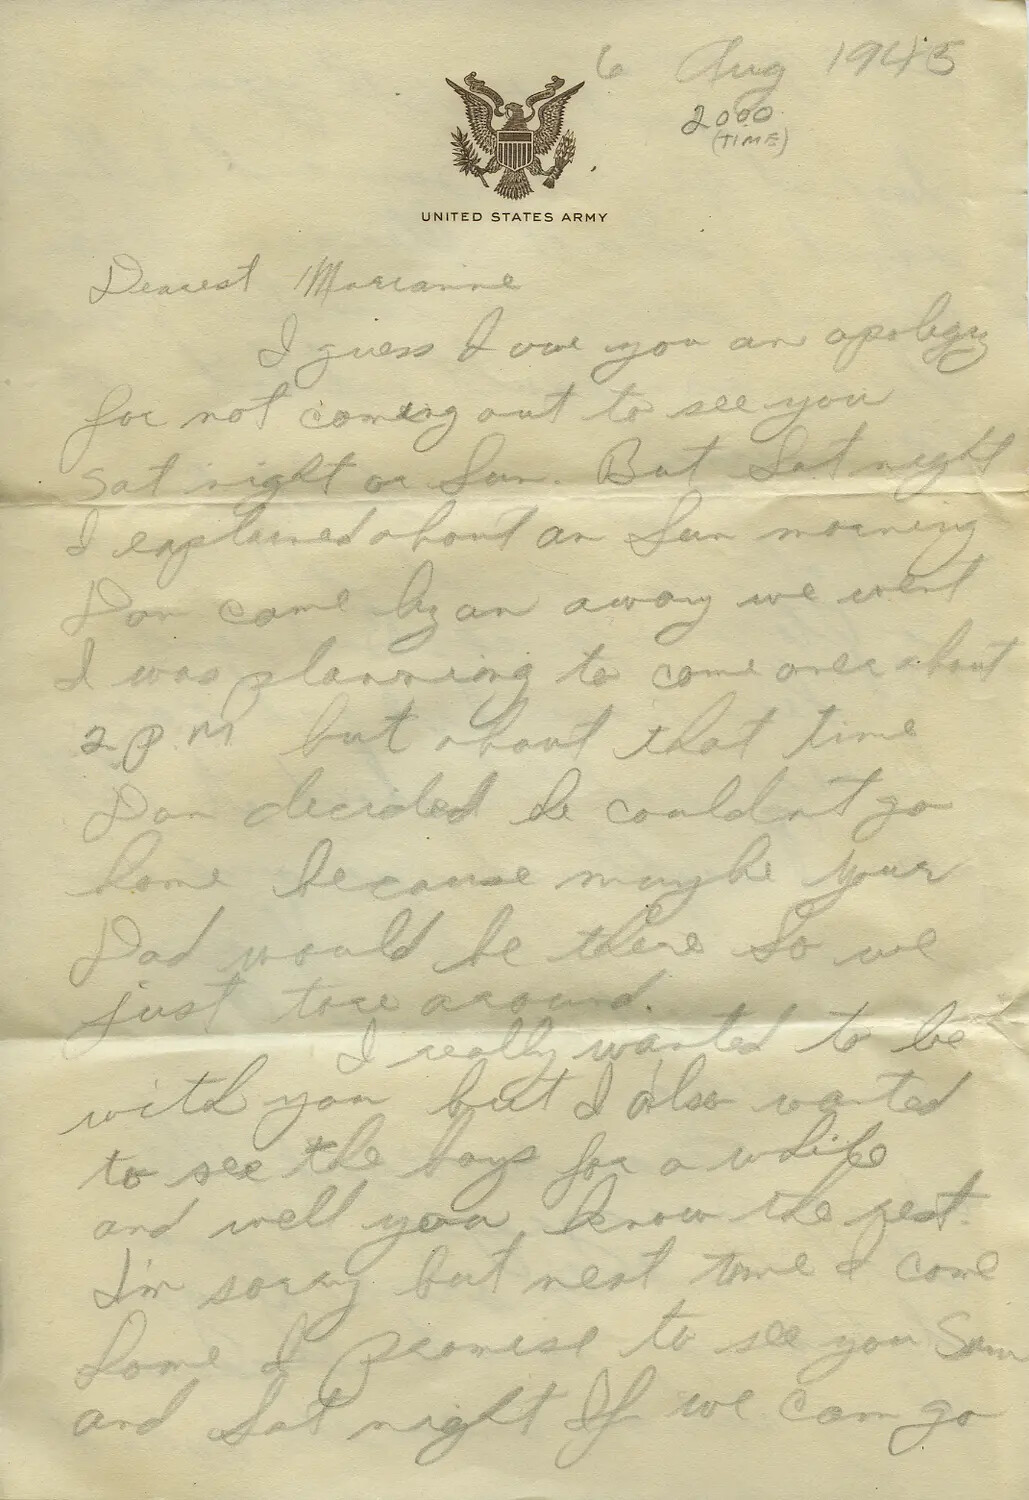 6 Aug 1945
2000
(TIME)
UNITED STATES ARMY
Dearest Marianne
I guess I owe you an apology
for not coming out to see you
Sat night or Sun. But Sat night
I explained about an Sun morning
Don came by an away we went
I was planning to come over about
2 P.M but about that time
Don decided he couldn't go
home because maybe your
Dad would be there So we
just tore around.
I really wanted to be
with you but I also wanted
to see the boys for a while
and well you know the rest.
I'm sorry but next time I come
home I promise to see you Sun
and Sat night If we can go